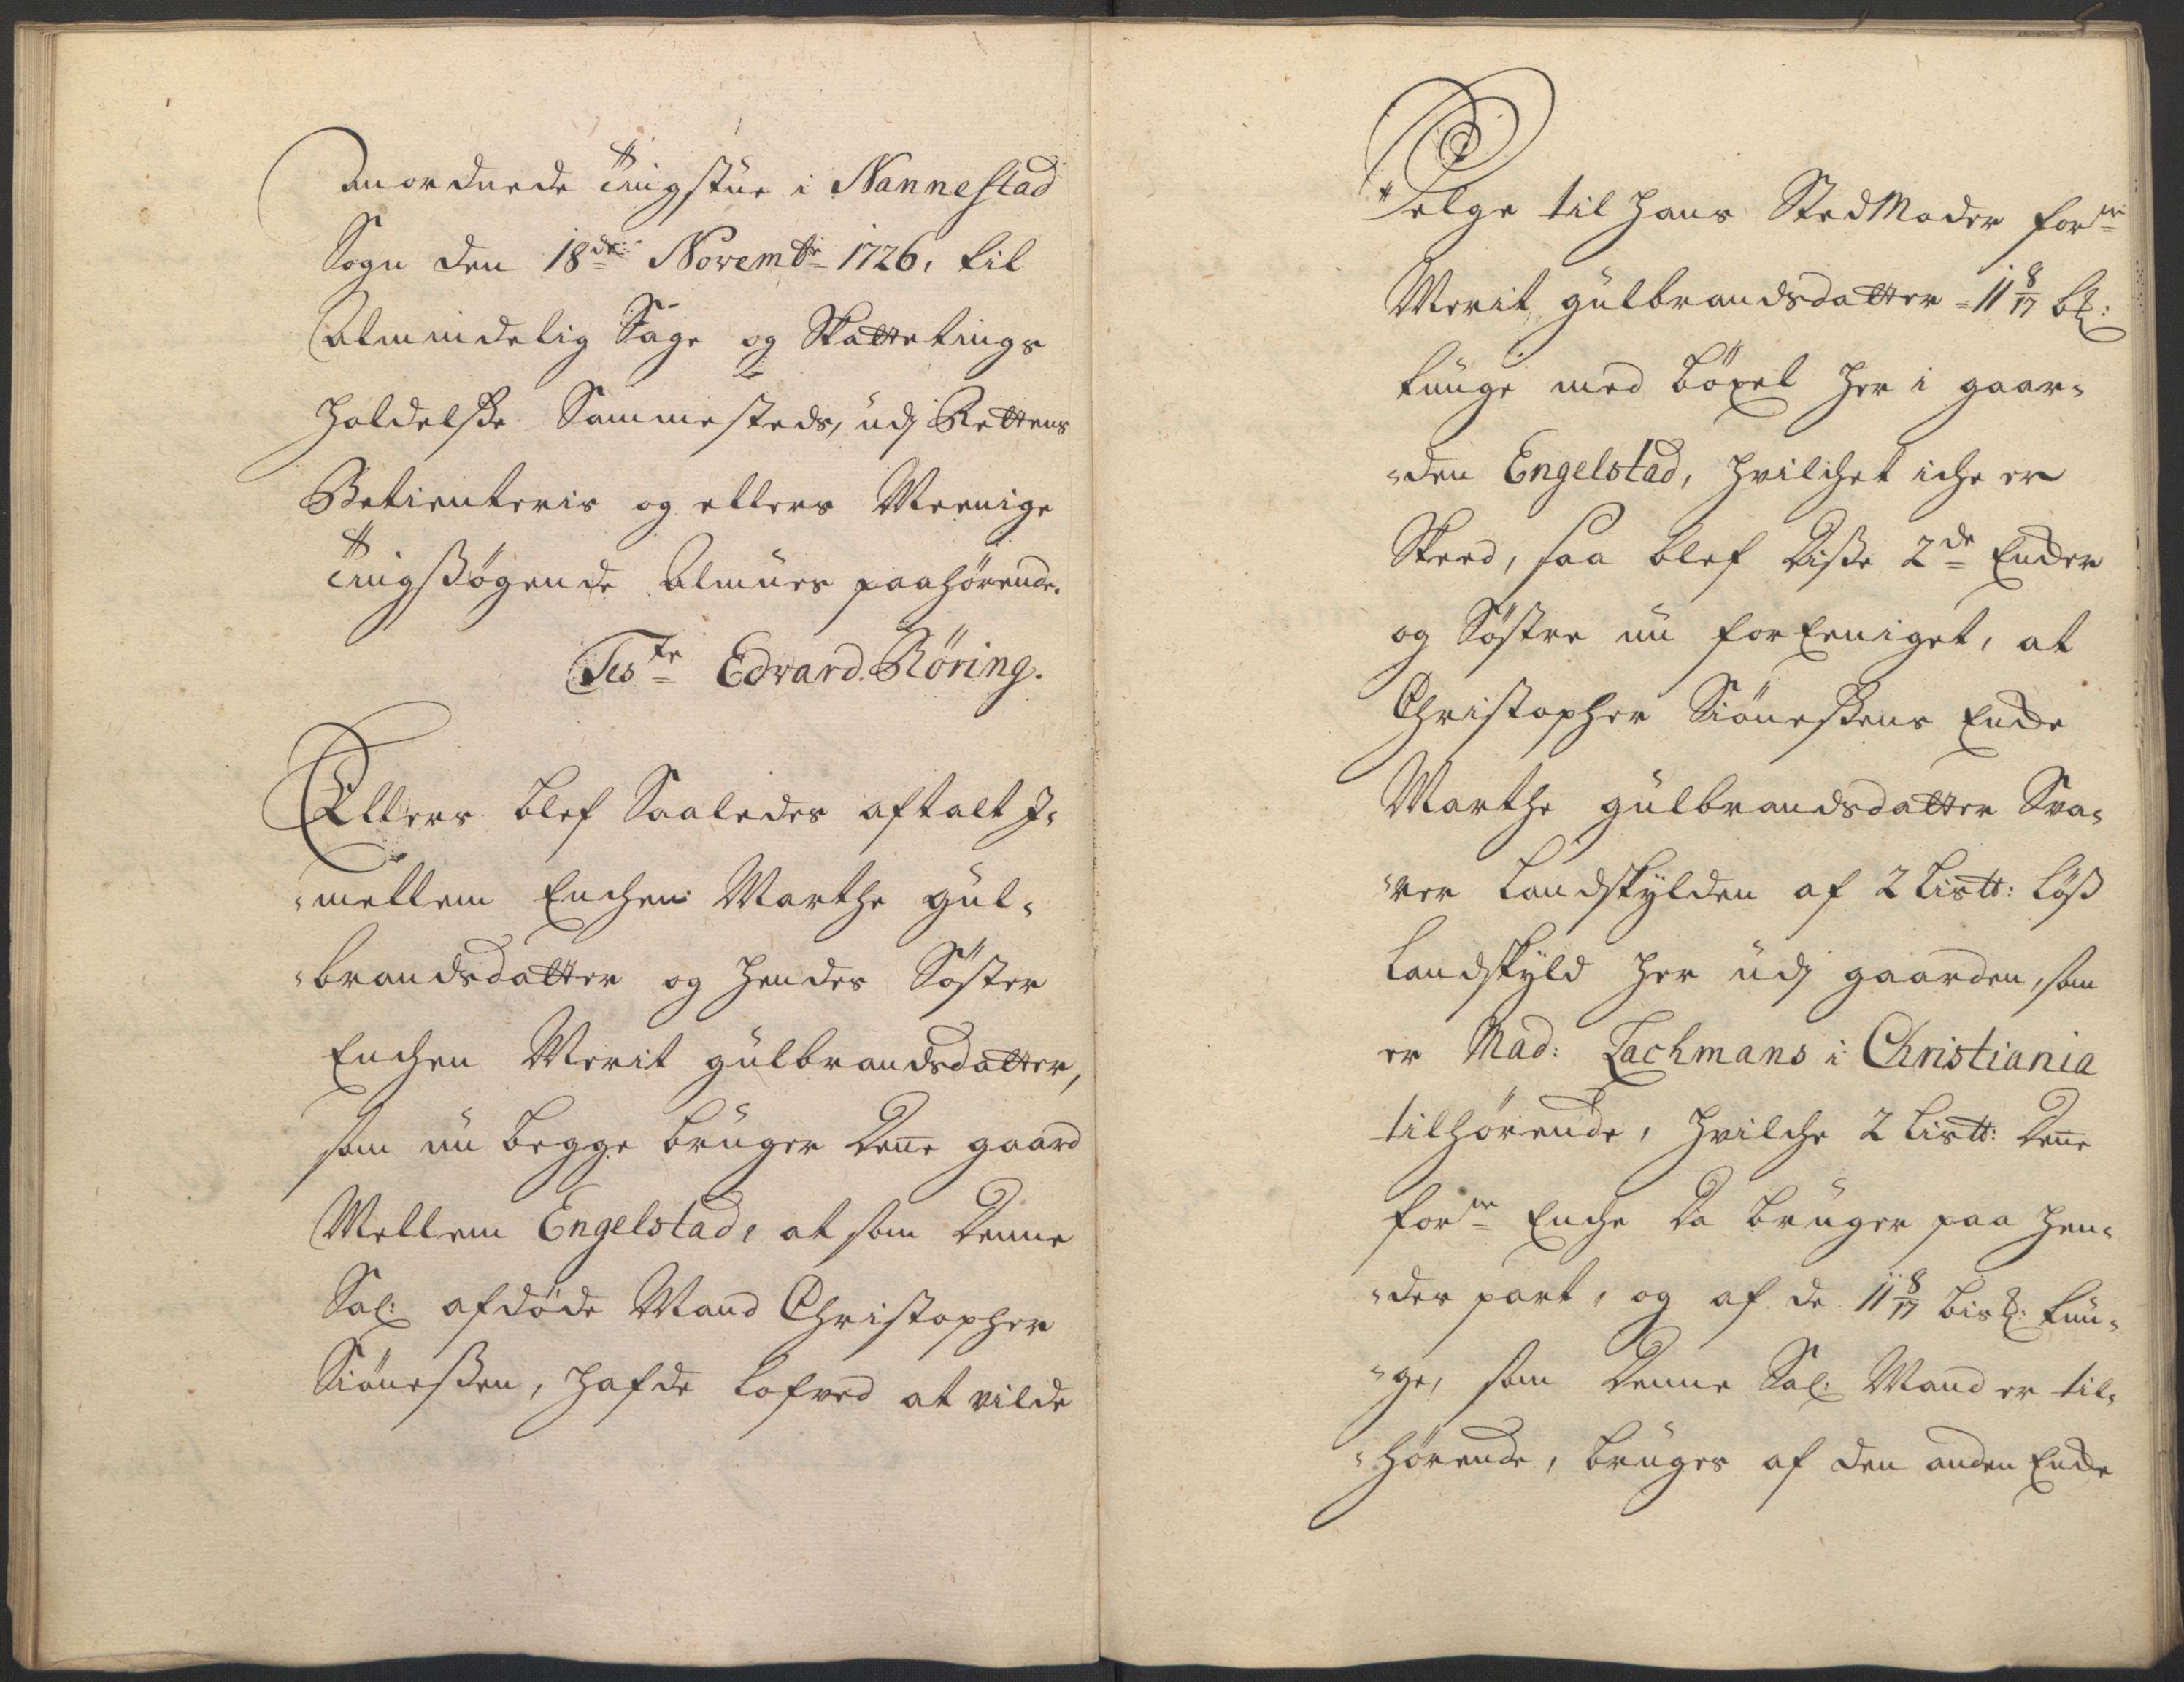 Anordnede Tingstue i Nannestad
Sogn den 18de Novembr 1726, til
Almindelig Sage og Skattetings
Holdelße Sammesteds, udj Rettens
Betienteris og ellers Meenige
Tingßøgende Almues paahørende.
Teste Edvard Röring.
Ellers blef Saaledes aftalt I-
mellem Enchen Marthe gul-
brandsdatter og hendes Søster
Enchen Merit gulbrandsdatter,
som nu begge bruger Denne gaard
Mellem Engelstad, at som Denne
Sal: afdøde Mand Christopher
Siöneßen, hafde Lofved at vilde
Selge til hans StedModer forne
Merit gulbrandsdatter 11 8/17 L℔:
tunge med böxel her i gaar-
den Engelstad, hvilchet iche er
Skeed, saa blef Diße 2de Encher
og Søstre nu foreeniget, at
Christopher Siöneßens Enche
Marthe gulbrandsdatter Sva-
rer Landskylden af 2 Lis℔: Løß
Landskyld her udj gaarden, som
er Mad: Lachmans i Christiania
tilhørende, hvilche 2 Lis℔: Denne
forne Enche Da bruger paa hen-
des part, og af de 11 8/17 Lis℔: tun-
ge, som Denne Sal: Mand er til-
hørende, bruges af den anden Enche